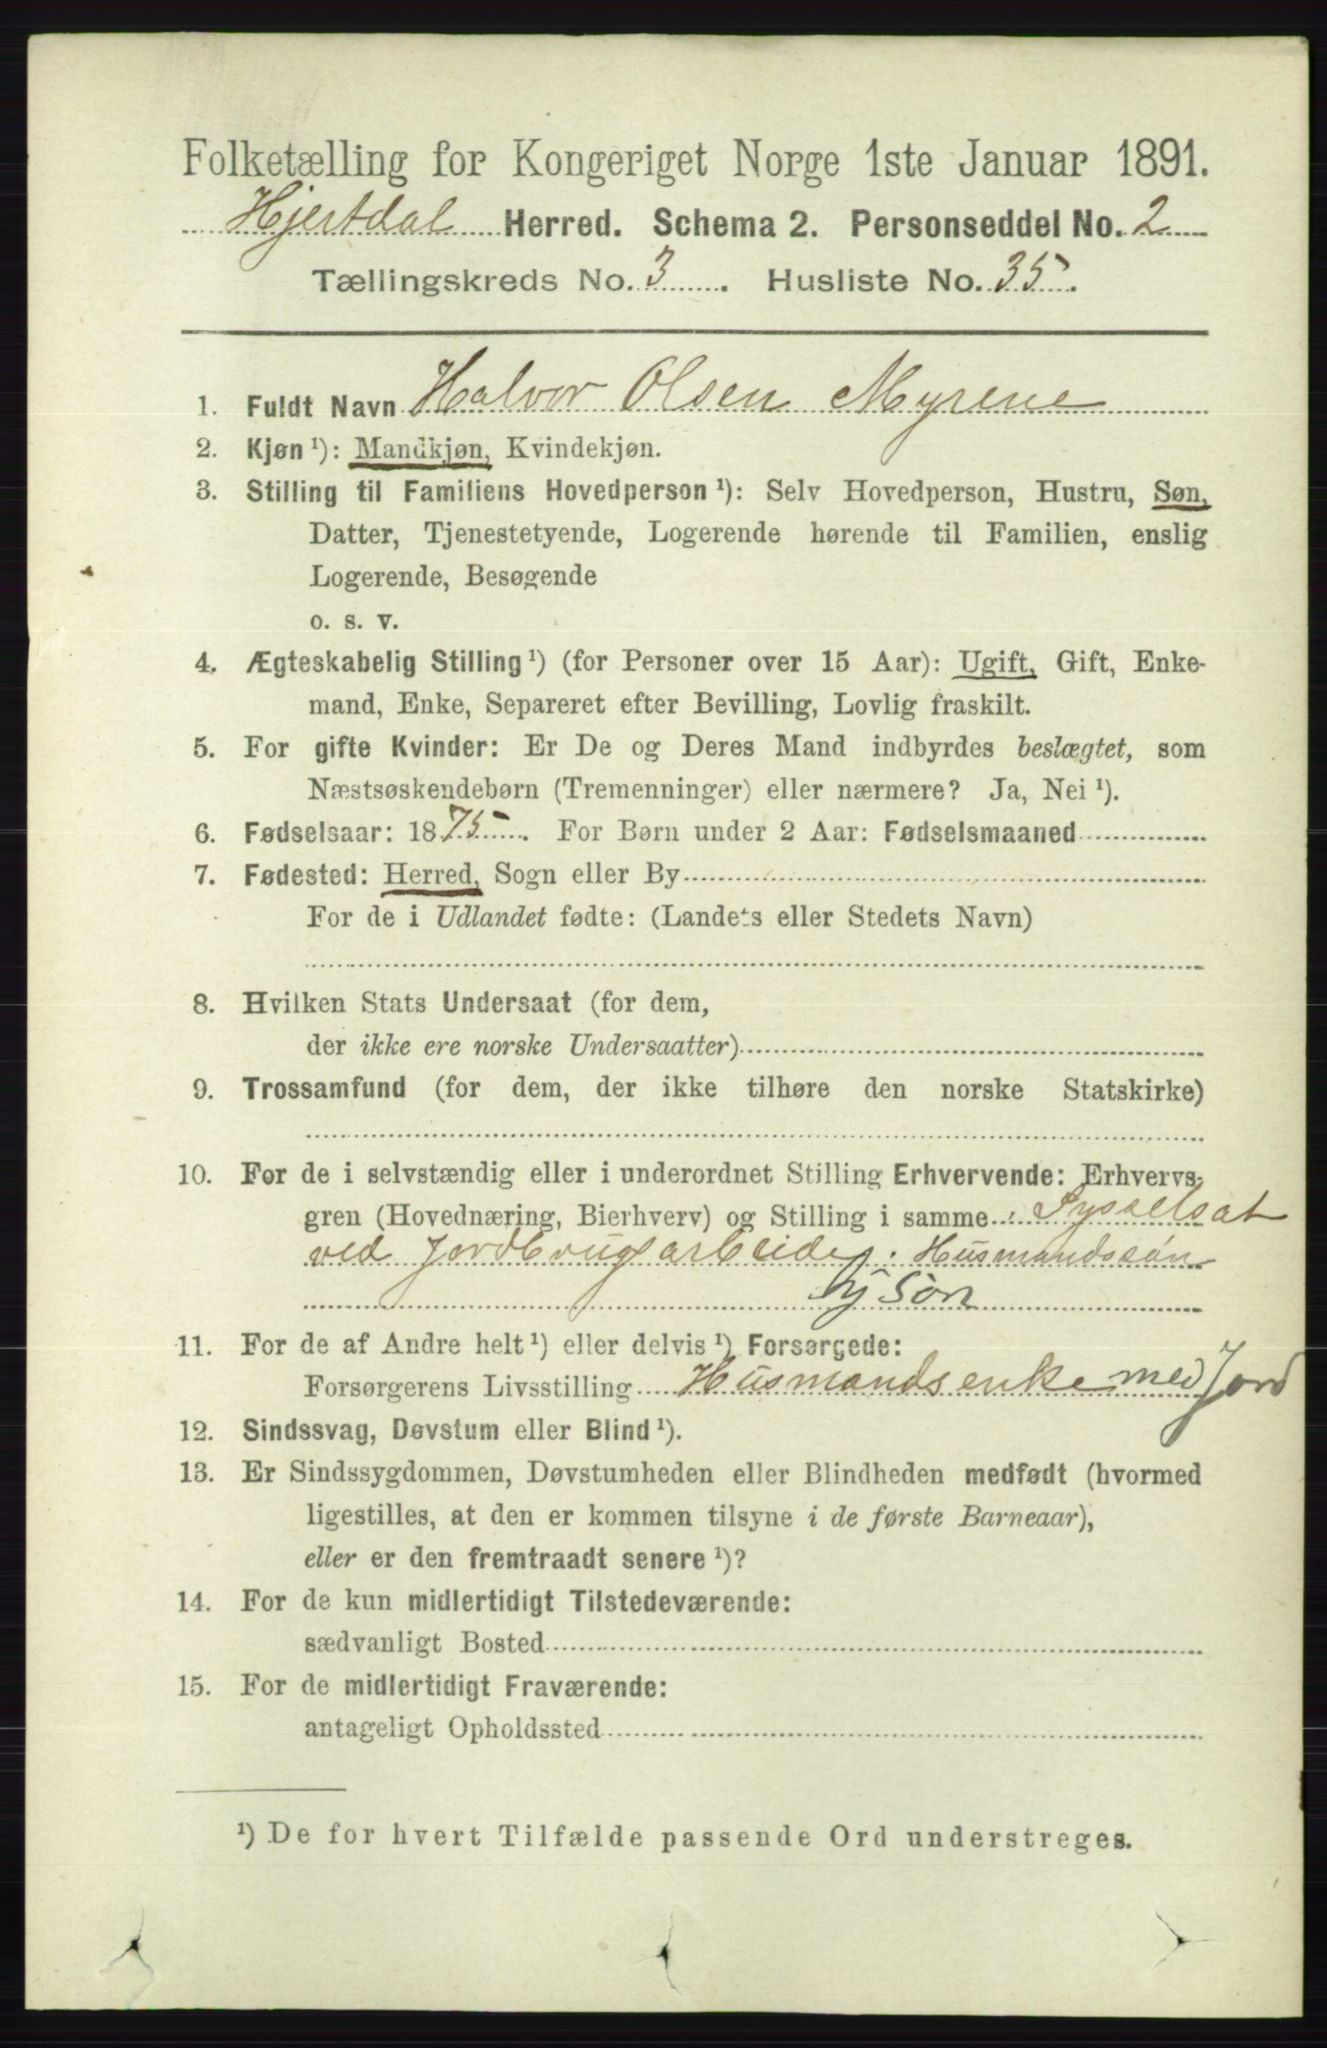 Folketælling for Kongeriget Norge 1ste Januar 1891.
Hjertdal Herred. Schema 2. Personseddel No. 2
Tællingskreds No. 3. Husliste No. 35.
1. Fuldt Navn Halvor Olsen Myrene
2. Kjøn ¹): Mandkjøn, Kvindekjøn.
3. Stilling til Familiens Hovedperson ¹): Selv Hovedperson, Hustru, Søn,
Datter, Tjenestetyende, Logerende hørende til Familien, enslig
Logerende, Besøgende
o. s. v.
4. Ægteskabelig Stilling ¹) (for Personer over 15 Aar): Ugift, Gift, Enke-
mand, Enke, Separeret efter Bevilling, Lovlig fraskilt.
5. For gifte Kvinder: Er De og Deres Mand indbyrdes beslægtet, som
Næstsøskendebørn (Tremenninger) eller nærmere? Ja, Nei ¹).
6. Fødselsaar: 1875. For Børn under 2 Aar: Fødselsmaaned
7. Fødested: Herred, Sogn eller By
For de i Udlandet fødte: (Landets eller Stedets Navn)
8. Hvilken Stats Undersaat (for dem,
der ikke ere norske Undersaatter)
9. Trossamfund (for dem, der ikke tilhøre den norske Statskirke)
10. For de i selvstændig eller i underordnet Stilling Erhvervende: Erhvervs-
gren (Hovednæring, Bierhverv) og Stilling i samme Sysselsat
ved Jordbrugsarbeide. Husmandssøn
Søn
11. For de af Andre helt ¹) eller delvis ¹) Forsørgede:
Forsørgerens Livsstilling Husmandsenke med Jord
12. Sindssvag, Døvstum eller Blind ¹).
13. Er Sindssygdommen, Døvstumheden eller Blindheden medfødt (hvormed
ligestilles, at den er kommen tilsyne i de første Barneaar),
eller er den fremtraadt senere ¹)?
14. For de kun midlertidigt Tilstedeværende:
sædvanligt Bosted
15. For de midlertidigt Fraværende:
antageligt Opholdssted
¹) De for hvert Tilfælde passende Ord understreges.